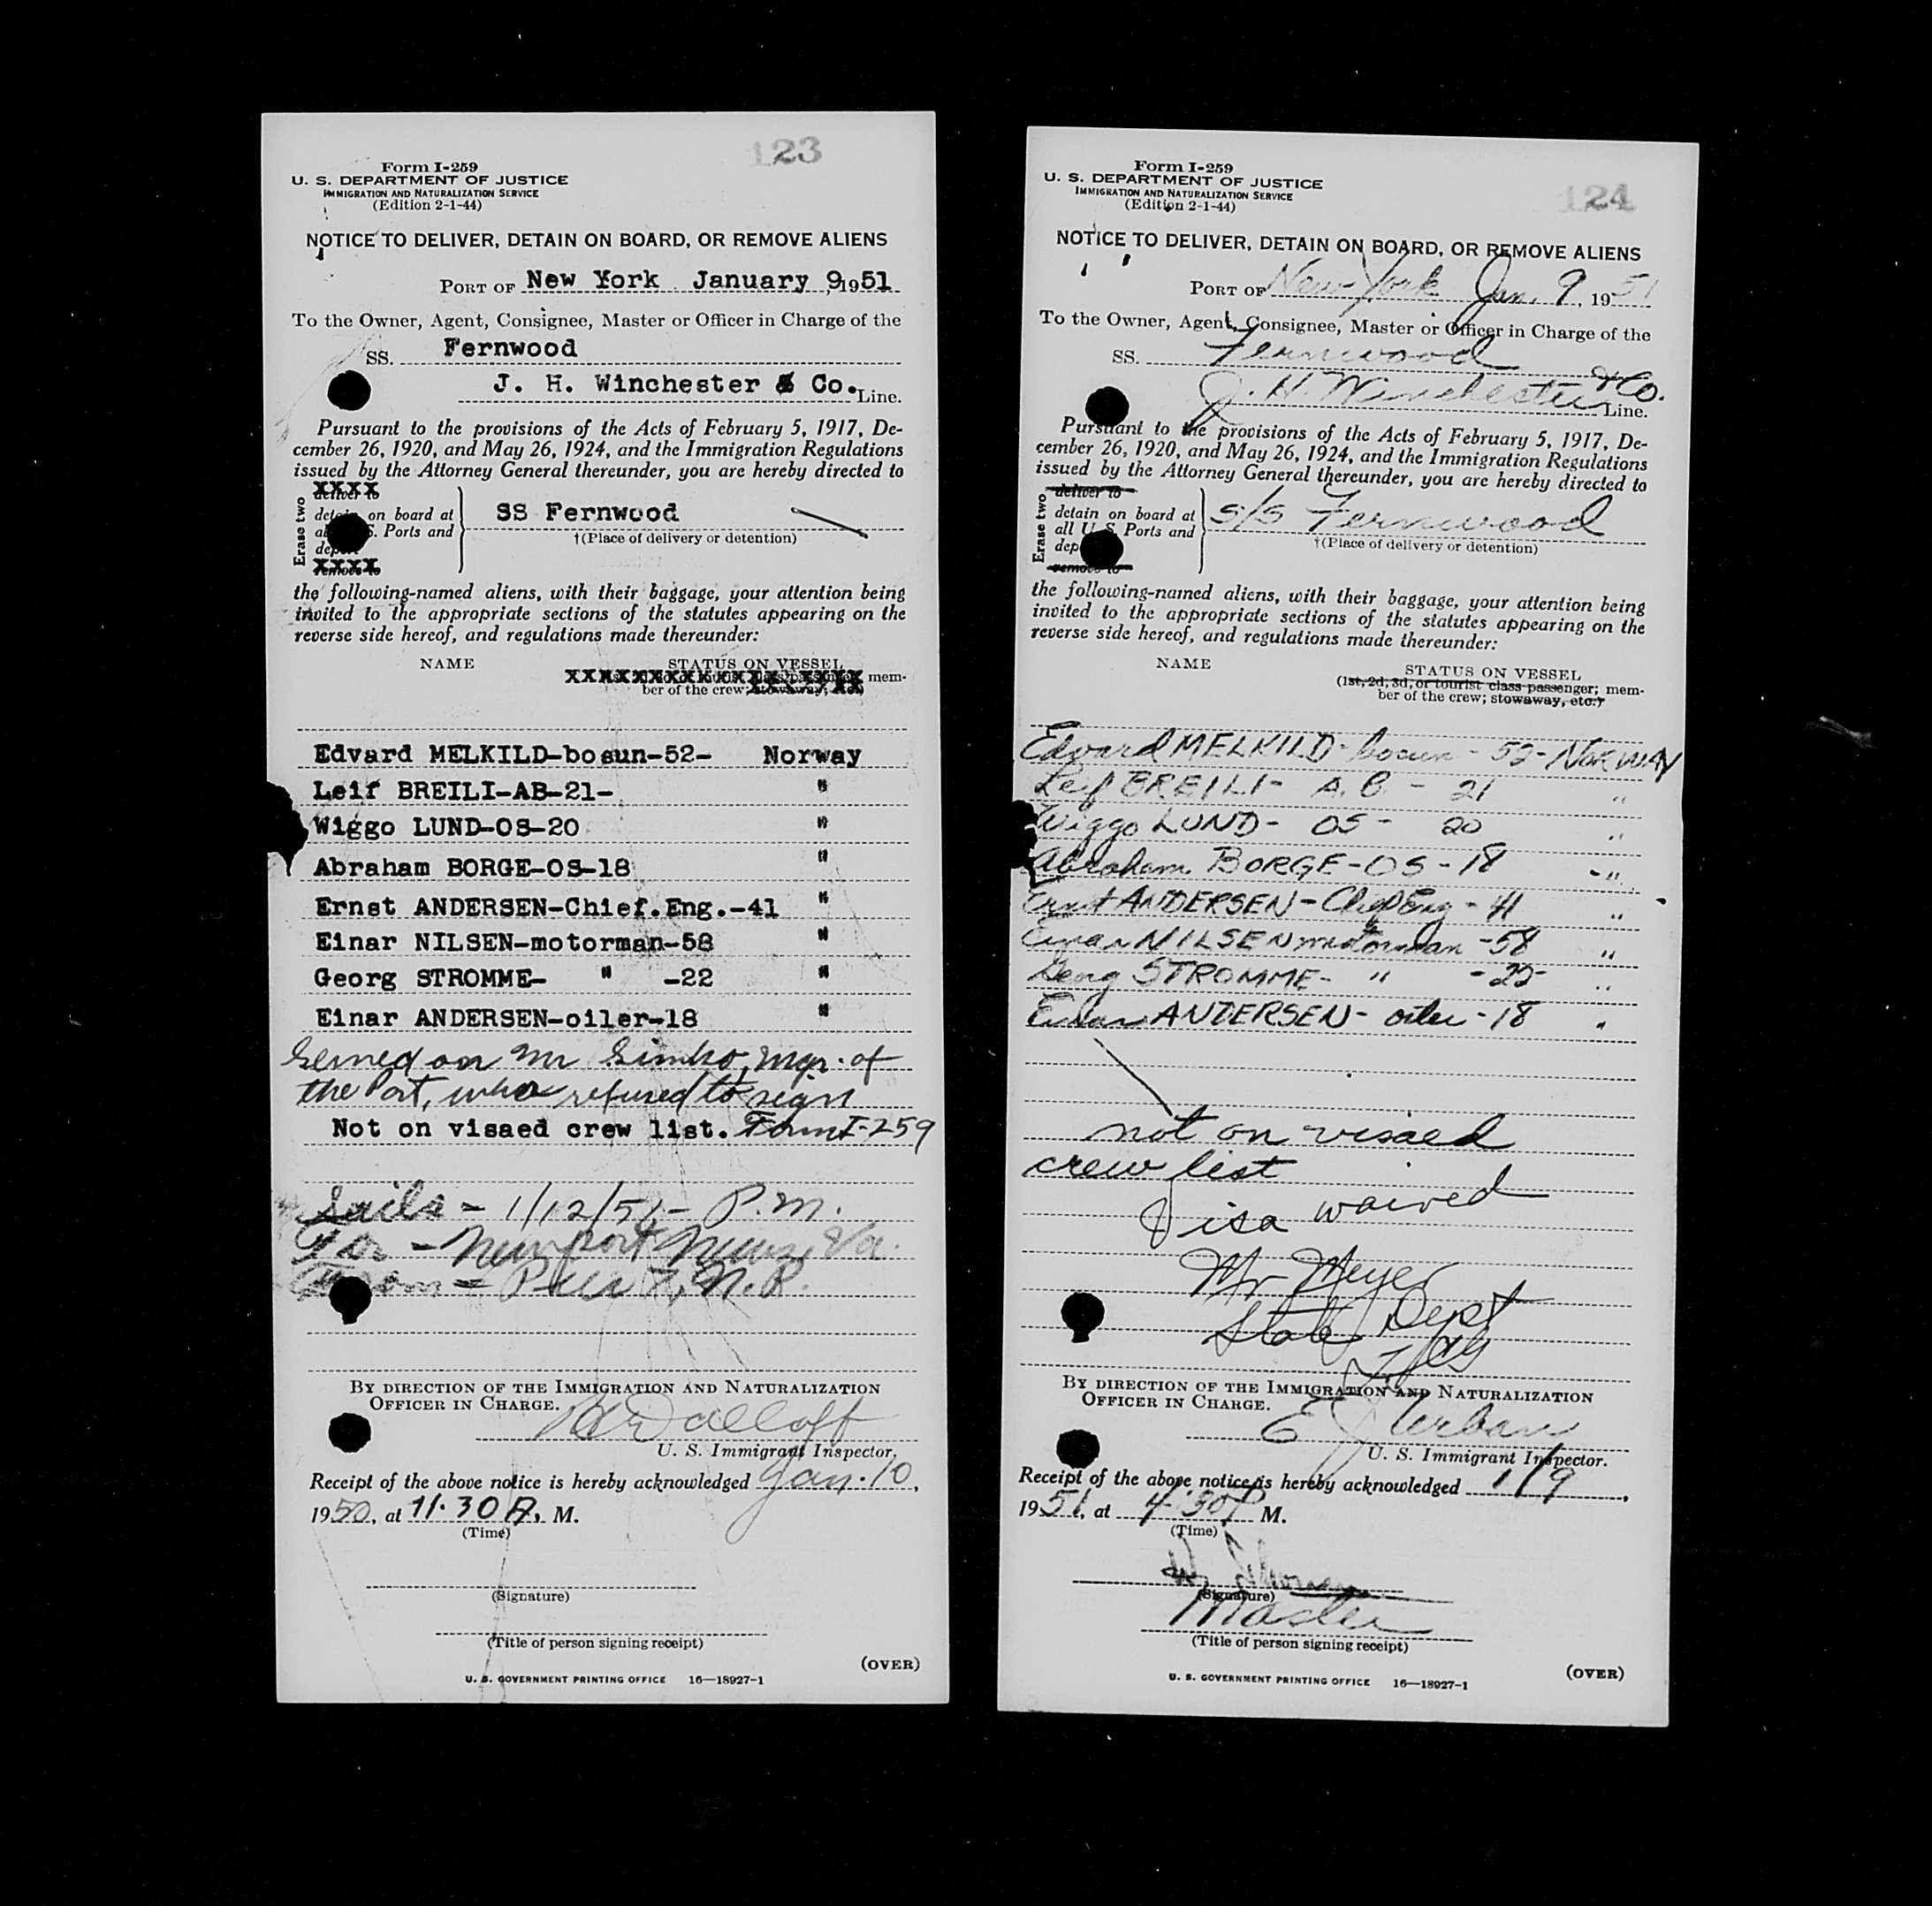 123
Form I-259
U. S. DEPARTMENT OF JUSTICE
IMMIGRATION AND NATURALIZATION SERVICE
(Edition 2-1-44)
NOTICE TO DELIVER, DETAIN ON BOARD, OR REMOVE ALIENS
PORT OF New York January 9, 1951
To the Owner, Agent, Consignee, Master or Officer in Charge of the
SS. Fernwood
J. H. Winchester & Co. Line.
Pursuant to the provisions of the Acts of February 5, 1917, De-
cember 26, 1920, and May 26, 1924, and the Immigration Regulations
issued by the Attorney General thereunder, you are hereby directed to
Erase two
XXXX
deliver to
on board at
S. Ports and
XXXX
remove to
SS Fernwood
†(Place of delivery or detention)
the following-named aliens, with their baggage, your attention being
invited to the appropriate sections of the statutes appearing on the
reverse side hereof, and regulations made thereunder:
NAME STATUS ON VESSEL
mem-
ber of the crew; stowaway, etc.)
Edvard MELKILD-bosun-52- Norway
Leif BREILI-AB-21- "
Wiggo LUND-OS-20 "
Abraham BORGE-OS-18 "
Ernst ANDERSEN-Chief.Eng.-41 "
Einar NILSEN-motorman-58 "
Georg STROMME- " -22 "
Einar ANDERSEN-oiler-18 "
Served on Mr Simko, Mgr. of
the Port, who refused to sign
Not on visaed crew list. Form I-259
Sails - 1/12/51 - P.M.
For - Newport News, Va.
From = Pier 7, N.R.
BY DIRECTION OF THE IMMIGRATION AND NATURALIZATION
OFFICER IN CHARGE.
U. S. Immigrant Inspector.
Receipt of the above notice is hereby acknowledged Jan. 10,
1950, at 11.30 A. M.
(Time)
(Signature)
(Title of person signing receipt)
(OVER)
U. S. GOVERNMENT PRINTING OFFICE 16—18927-1
124
Form I-259
U. S. DEPARTMENT OF JUSTICE
IMMIGRATION AND NATURALIZATION SERVICE
(Edition 2-1-44)
NOTICE TO DELIVER, DETAIN ON BOARD, OR REMOVE ALIENS
PORT OF New York Jan. 9, 1951
To the Owner, Agent, Consignee, Master or Officer in Charge of the
SS. Fernwood
J. H. Winchester & Co. Line.
Pursuant to the provisions of the Acts of February 5, 1917, De-
cember 26, 1920, and May 26, 1924, and the Immigration Regulations
issued by the Attorney General thereunder, you are hereby directed to
Erase two
deliver to
detain on board at
all U. S. Ports and
remove to
S/S Fernwood
†(Place of delivery or detention)
the following-named aliens, with their baggage, your attention being
invited to the appropriate sections of the statutes appearing on the
reverse side hereof, and regulations made thereunder:
NAME STATUS ON VESSEL
(1st, 2d, 3d, or tourist class passenger; mem-
ber of the crew; stowaway, etc.)
Edvard MELKILD - bosun - 52 - NORWAY
Leif BREILI - A.B. - 21 "
Wiggo LUND - OS - 20 "
Abraham BORGE - OS - 18 - "
Ernst ANDERSEN - Chief Eng - 41 "
Einar NILSEN motorman - 58 "
Georg STROMME - " - 22 - "
Einar ANDERSEN - oiler - 18 "
not on visaed
crew list
Visa waived
Mr Meyer
State Dept
BY DIRECTION OF THE IMMIGRATION AND NATURALIZATION
OFFICER IN CHARGE.
E J Urban
U. S. Immigrant Inspector.
Receipt of the above notice is hereby acknowledged 1/9,
1951, at 4:30 P M.
(Time)
(Signature)
Master
(Title of person signing receipt)
(OVER)
U. S. GOVERNMENT PRINTING OFFICE 16—18927-1